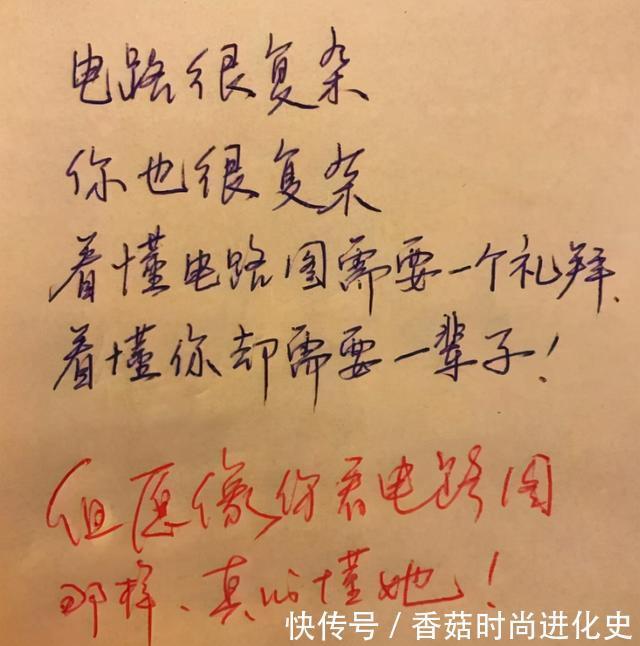 电路很复杂
你也很复杂
看懂电路图需要一个礼拜、
看懂你却需要一辈子！
但愿像你看电路图
那样、真的懂她！
快传号/香菇时尚进化史